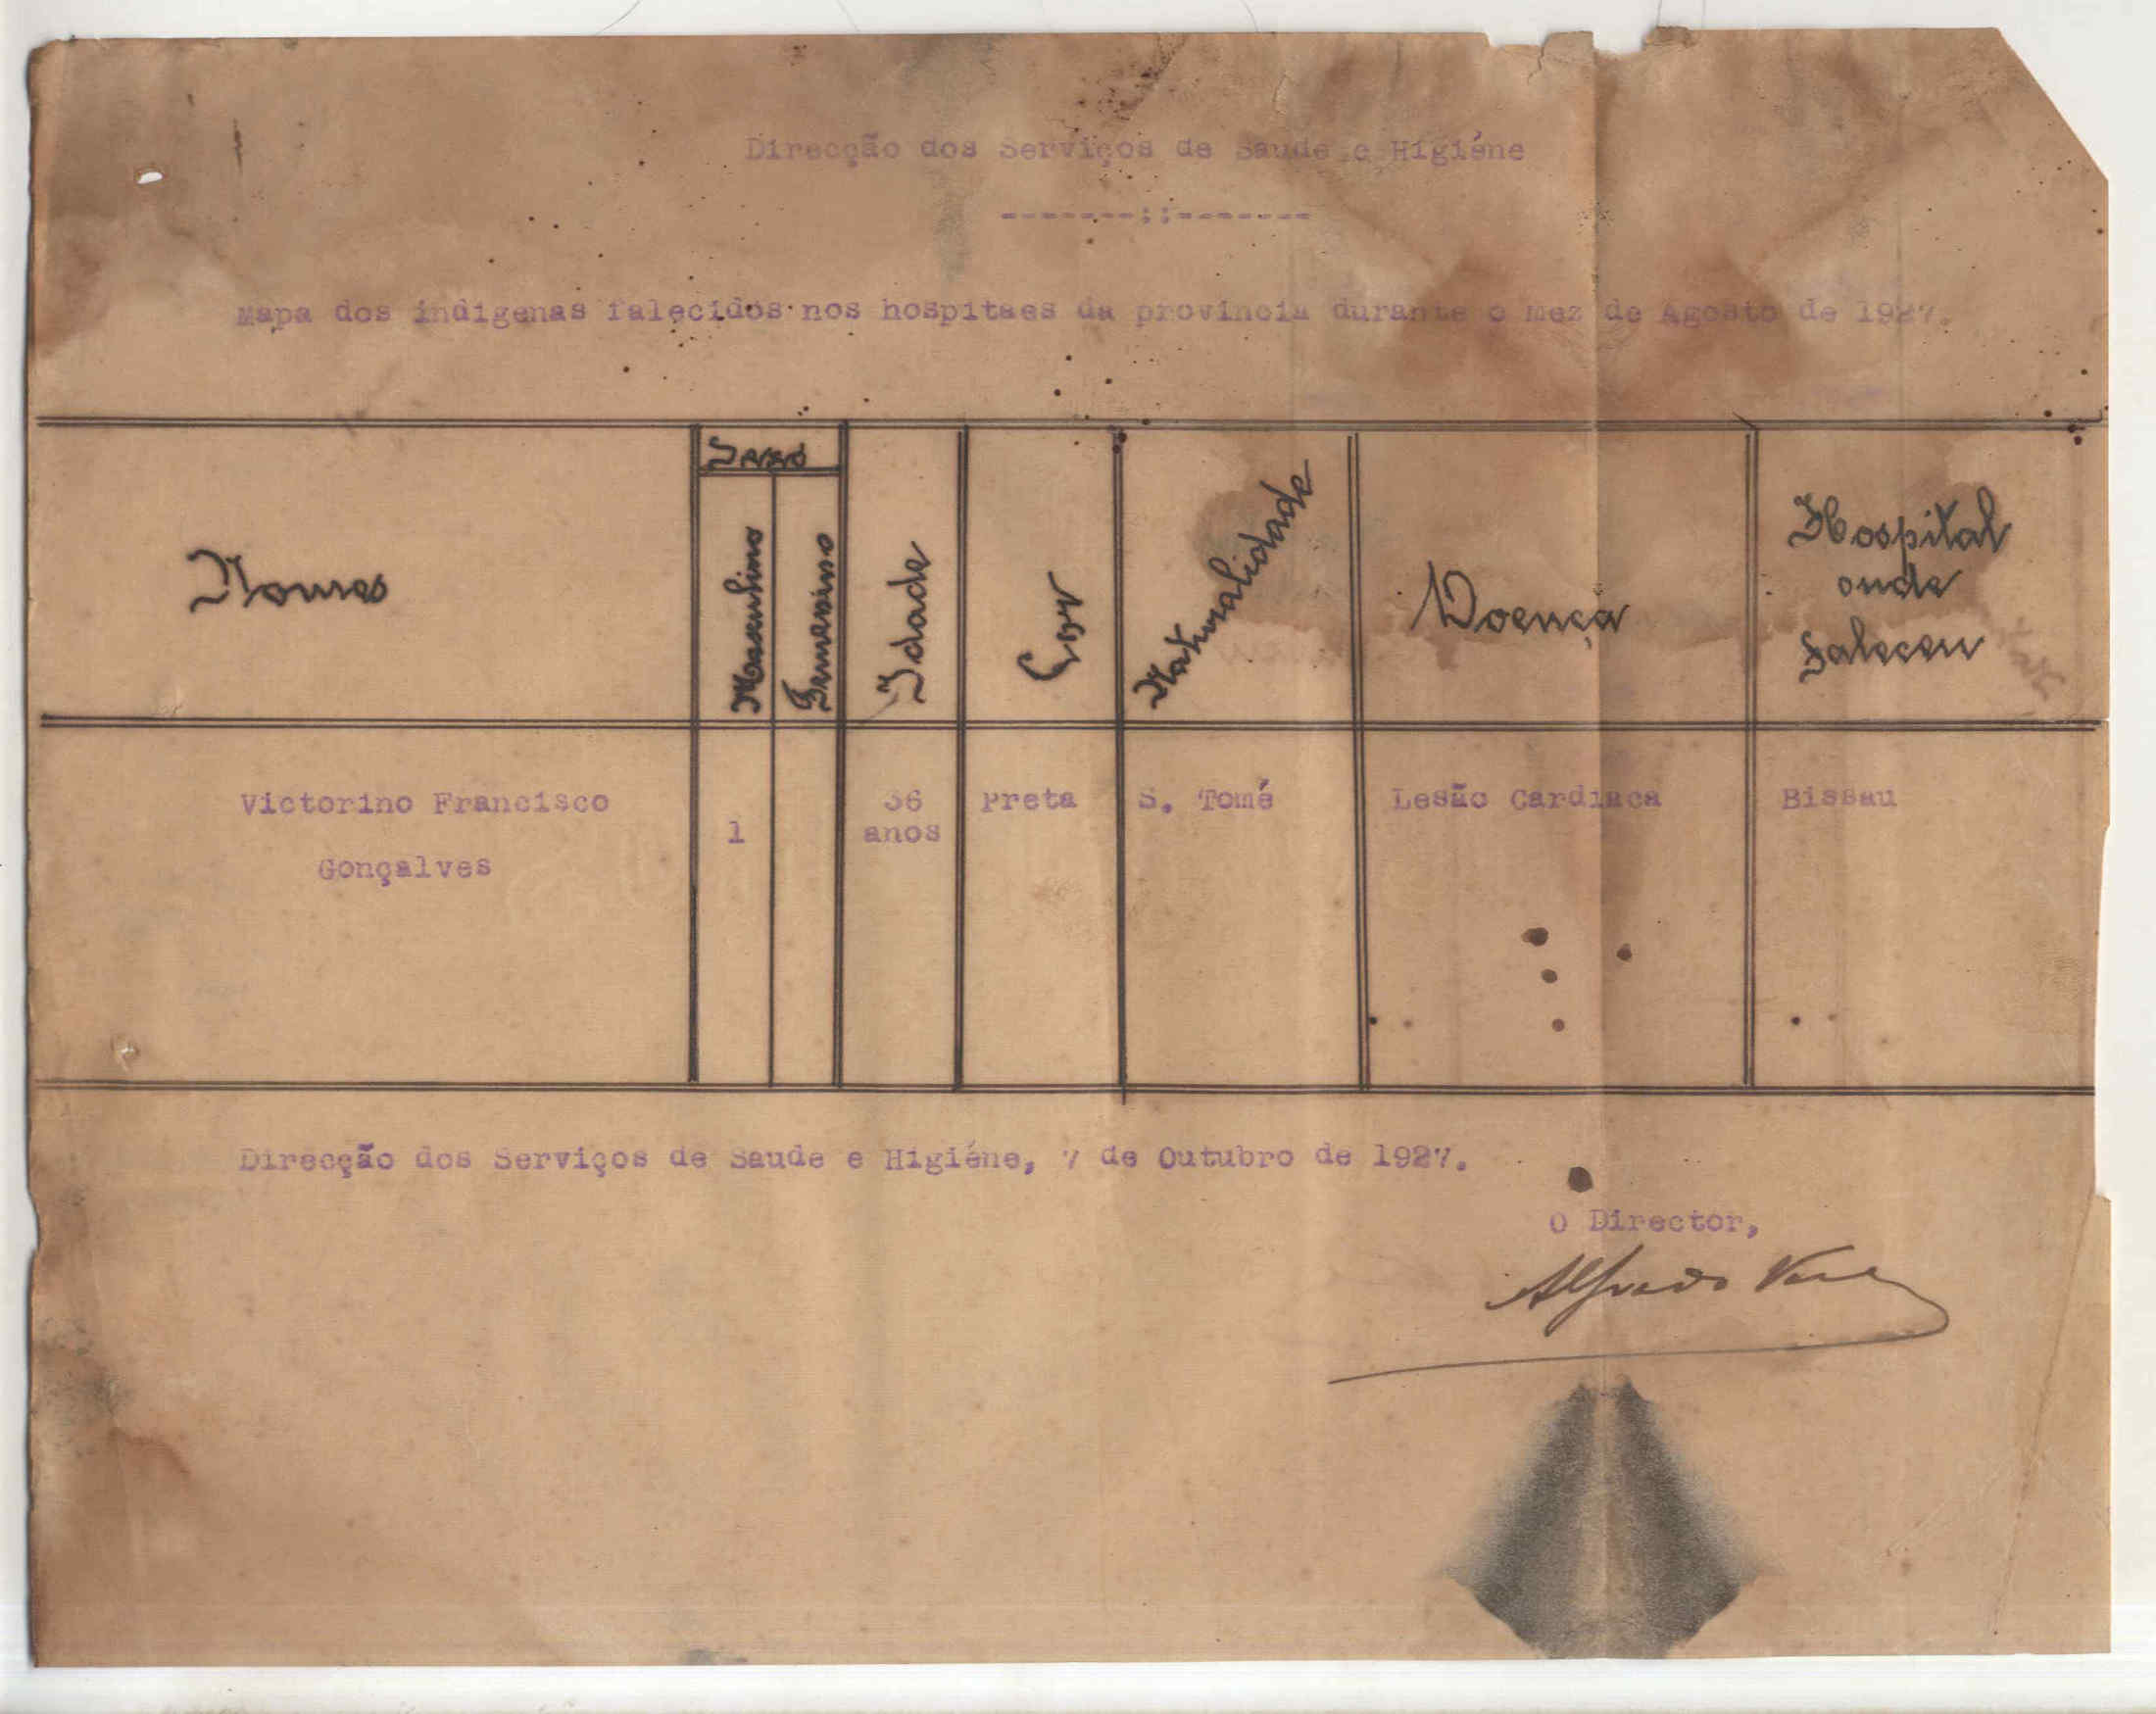 Direcção dos Serviços de Saude e Higiéne
-------::-------
Mapa dos indigenas falecidos nos hospitaes da provincia durante o mez de Agosto de 1927.
Nomes
Sexo
Masculino
Femenino
Idade
Cor
Naturalidade
Doença
Hospital
onde
faleceu
Victorino Francisco
Gonçalves
1
36
anos
Preta
S. Tomé
Lesão Cardiaca
Bissau
Direcção dos Serviços de Saude e Higiéne, 7 de Outubro de 1927.
O Director,
Alfredo